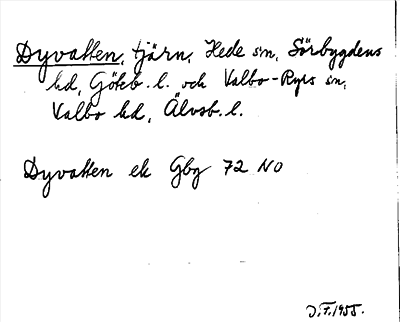 Dyvatten, tjärn, Hede sn, Sörbygdens
hd, Göteb. l. och Valbo-Ryrs sn,
Valbo hd, Älvsb. l.
Dyvatten ek Gbg 72 NO
J.F. 1955.